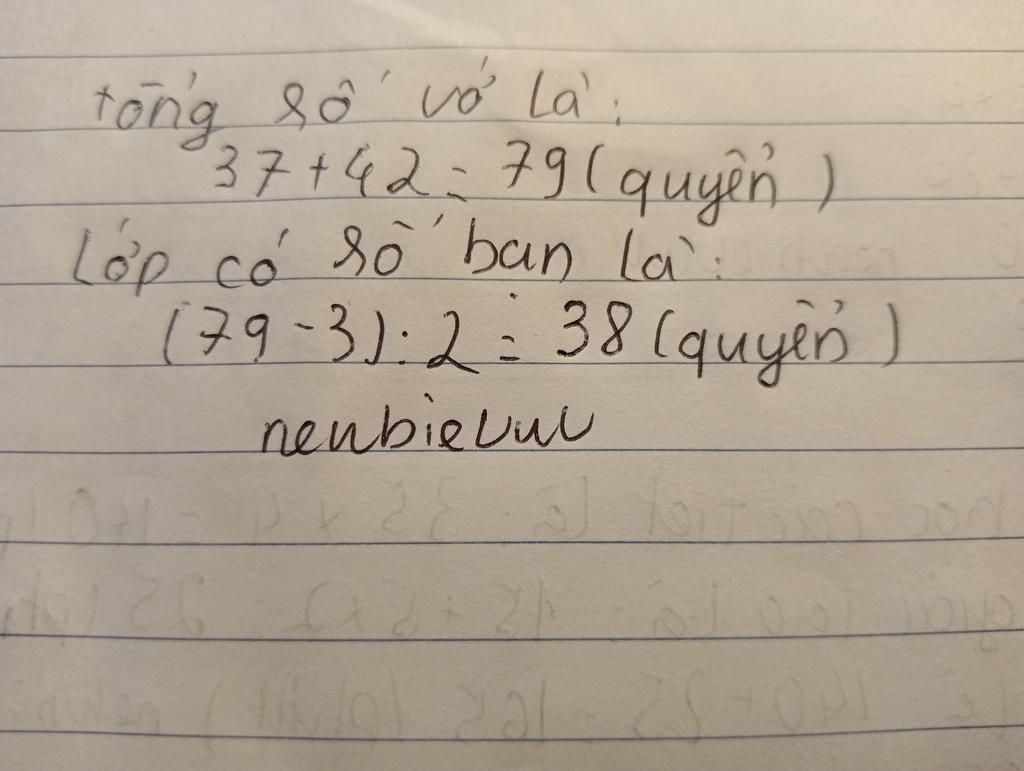 tổng số vở là:
37 + 42 = 79 (quyển)
Lớp có số bạn là:
(79 - 3) : 2 = 38 (quyển)
newbievuv